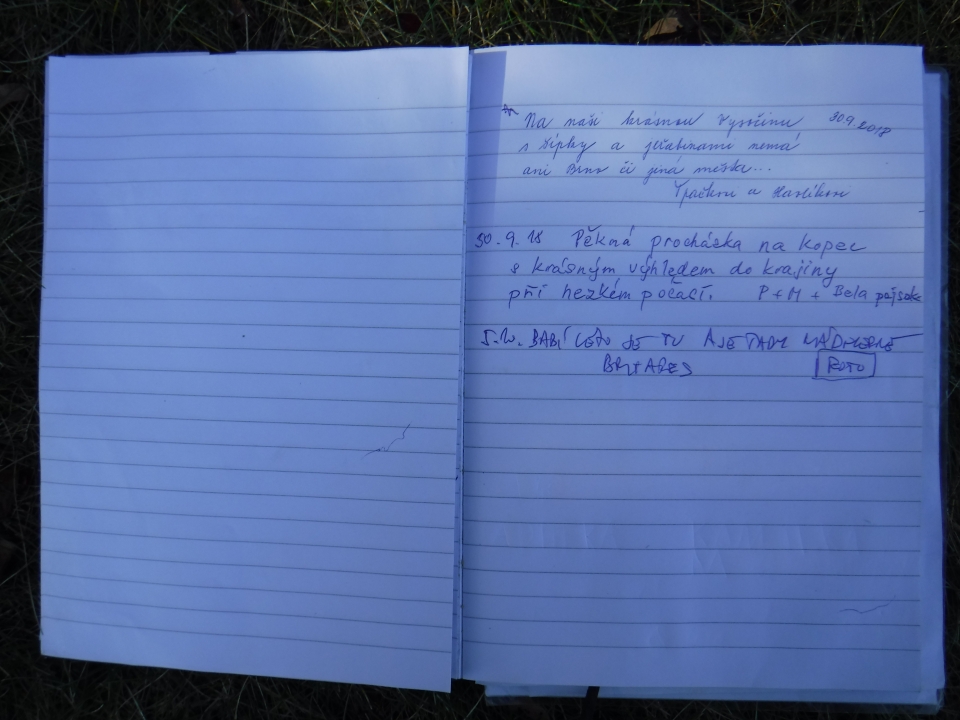 Na naši krásnou Vysočinu 30.9.2018
s šípky a jeřabinami nemá
ani Brno či jiná města...
a Havlíkovi
30.9.18 Pěkná procházka na kopec
s krásným výhledem do krajiny
při hezkém počasí. P + M + Bela pejsek
BABÍ LÉTO JE TU A JE TADY NÁDHERNĚ
FOTO